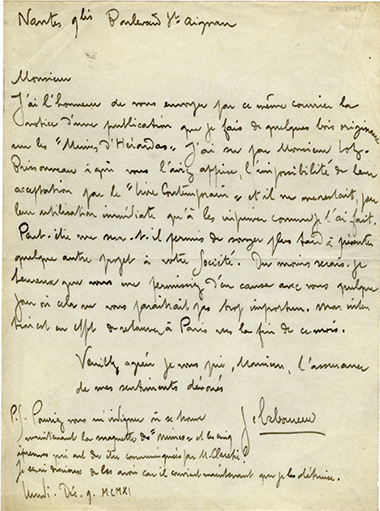 Nantes 9bis Boulevard St Aignan
Monsieur
J'ai l'honneur de vous envoyer par ce même courrier la
notice d'une publication que je fais de quelques bois originaux
sur les "Mimes d'Hérondas" J'ai su par Monsieur
à qui vous l'aviez appris, l'impossibilité de leur
acceptation par le "Livre Contemporain" et il ne me restait, pour
leur utilisation immédiate qu'à les imprimer comme je l'ai fait.
Peut-être me sera-t-il permis de songer plus tard à présenter
quelque autre projet à votre Société. Du moins serais-je
heureux que vous me permissiez d'en causer avec vous quelque
jour où cela ne vous paraîtrait pas trop importun. Mon intention
est en effet de retourner à Paris vers la fin de ce mois.
Veuillez agréer je vous prie, Monsieur, l'assurance
de mes sentiments dévoués
P.S. Pourriez vous m'indiquer où se trouve
maintenant la maquette des "mimes" et les cinq
épreuves qui ont dû être communiquées par M. Claretie?
Je serai désireux de les avoir car il convient maintenant que je les détruise.
Lundi. Déc. 9. MCMXI